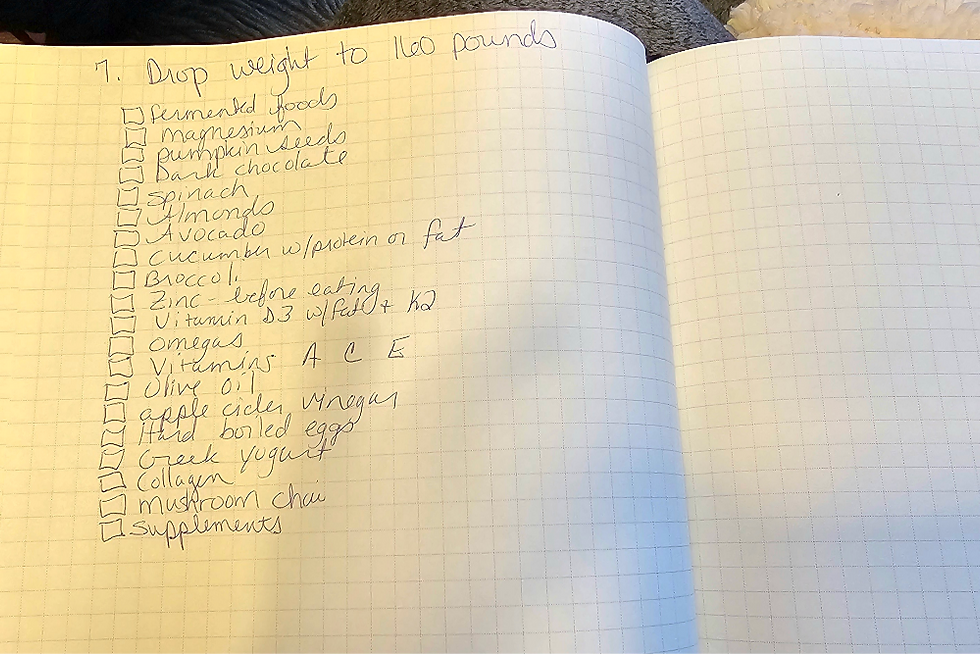 7. Drop weight to 160 pounds
fermented foods
magnesium
pumpkin seeds
Dark chocolate
spinach
Almonds
Avocado
cucumber w/protein or fat
Broccoli
Zinc - before eating
Vitamin D3 w/fat + K2
omegas
Vitamins A C E
Olive oil
apple cider vinegar
Hard boiled eggs
Greek yogurt
Collagen
mushroom chai
supplements